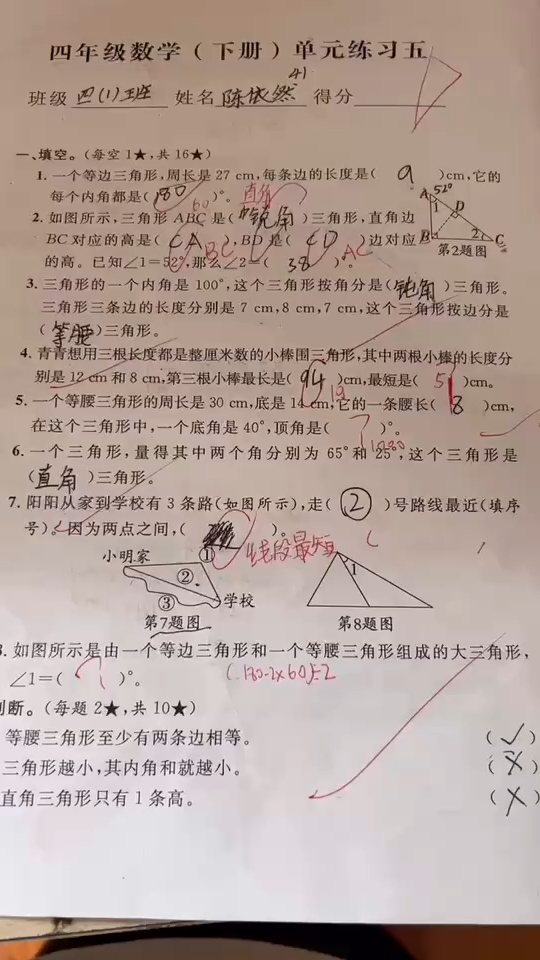 四年级数学（下册）单元练习五
班级 四(1)班 姓名 陈依然 41 得分
一、填空。（每空1★，共16★）
1. 一个等边三角形，周长是27 cm，每条边的长度是( 9 )cm，它的
每个内角都是( 180 )°。 60 直角
2. 如图所示，三角形ABC是( 锐角 )三角形，直角边
BC对应的高是( CA )，BD是( CD )边对应 BC AC
的高。已知∠1=52°，那么∠2=( 38 )°。
A 52° 1 D B 2 C
第2题图
3. 三角形的一个内角是100°，这个三角形按角分是( 钝角 )三角形。
三角形三条边的长度分别是7 cm，8 cm，7 cm，这个三角形按边分是
( 等腰 )三角形。
4. 青青想用三根长度都是整厘米数的小棒围三角形，其中两根小棒的长度分
别是12 cm和8 cm，第三根小棒最长是( 94 )cm，最短是( 5 )cm。 19
5. 一个等腰三角形的周长是30 cm，底是14 cm，它的一条腰长( 8 )cm，
在这个三角形中，一个底角是40°，顶角是( )°。
6. 一个三角形，量得其中两个角分别为65°和25°，这个三角形是
( 直角 )三角形。
7. 阳阳从家到学校有3条路（如图所示），走( ② )号路线最近（填序
号）。因为两点之间，( )。 线段最短
小明家 ① ② ③ 学校
1
第7题图 第8题图
8. 如图所示是由一个等边三角形和一个等腰三角形组成的大三角形，
∠1=( )°。 (180-2×60)÷2
判断。（每题2★，共10★）
等腰三角形至少有两条边相等。 ( ✓ )
三角形越小，其内角和就越小。 ( ✗ )
直角三角形只有1条高。 ( ✗ )